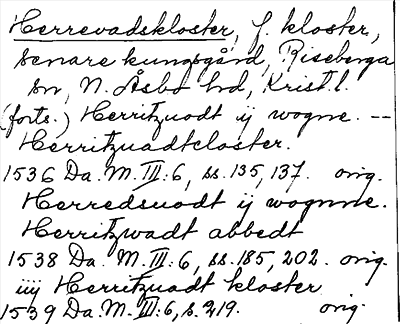 Herrevadskloster, f. kloster,
senare kungsgård, Riseberga
sn, N. Åsbo hd, Krist. l.
(forts.) Herritzuodt ij wogne. --
Herritzuadtcloster.
1536 Da. M. III: 6, ss. 135, 137. orig.
Herredsuodt ij wognne.
Herritzwadt abbedt
1538 Da. M. III: 6, ss. 185, 202. orig.
iiij Herritzuadt kloster
1539 Da. M. III: 6, s. 219. orig.